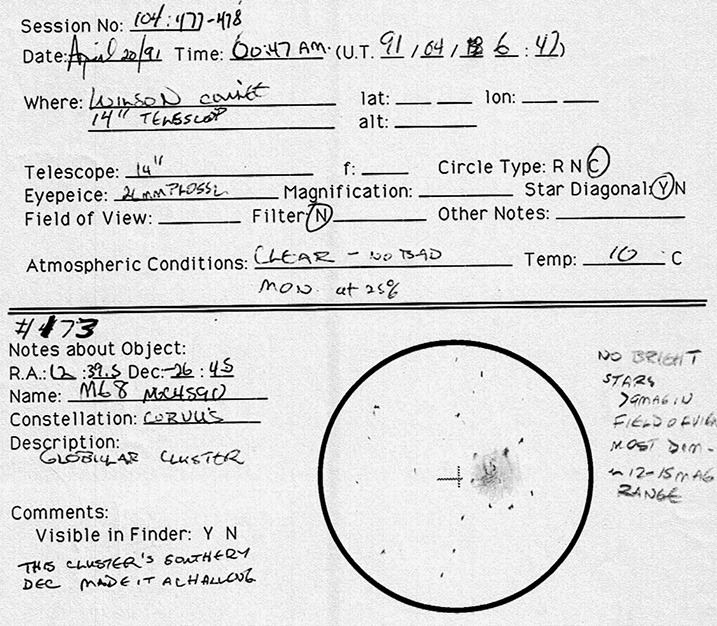 Session No: 104:477-478
Date: April 20/91 Time: 00:47 AM. (U.T. 91 / 04 / 6 : 47)
Where: WILSON COULEE
14" TELESCOP
lat: lon:
alt:
Telescope: 14" f: Circle Type: R N C
Eyepeice: 26mm PLOSSL Magnification: Star Diagonal: Y N
Field of View: Filter: N Other Notes:
Atmospheric Conditions: CLEAR - NO BAD Temp: 10 C
MOON. at 25%
#473
Notes about Object:
R.A.: 12 : 39.5 Dec: -26 : 45
Name: M68 NGC4590
Constellation: CORVUS
Description:
GLOBULAR CLUSTER
Comments:
Visible in Finder: Y N
THIS CLUSTER'S SOUTHERY
DEC MADE IT A CHALLENG
NO BRIGHT
STARS
>9MAG IN
FIELD OF VIEW
MOST DIM -
12-15 MAG
RANGE